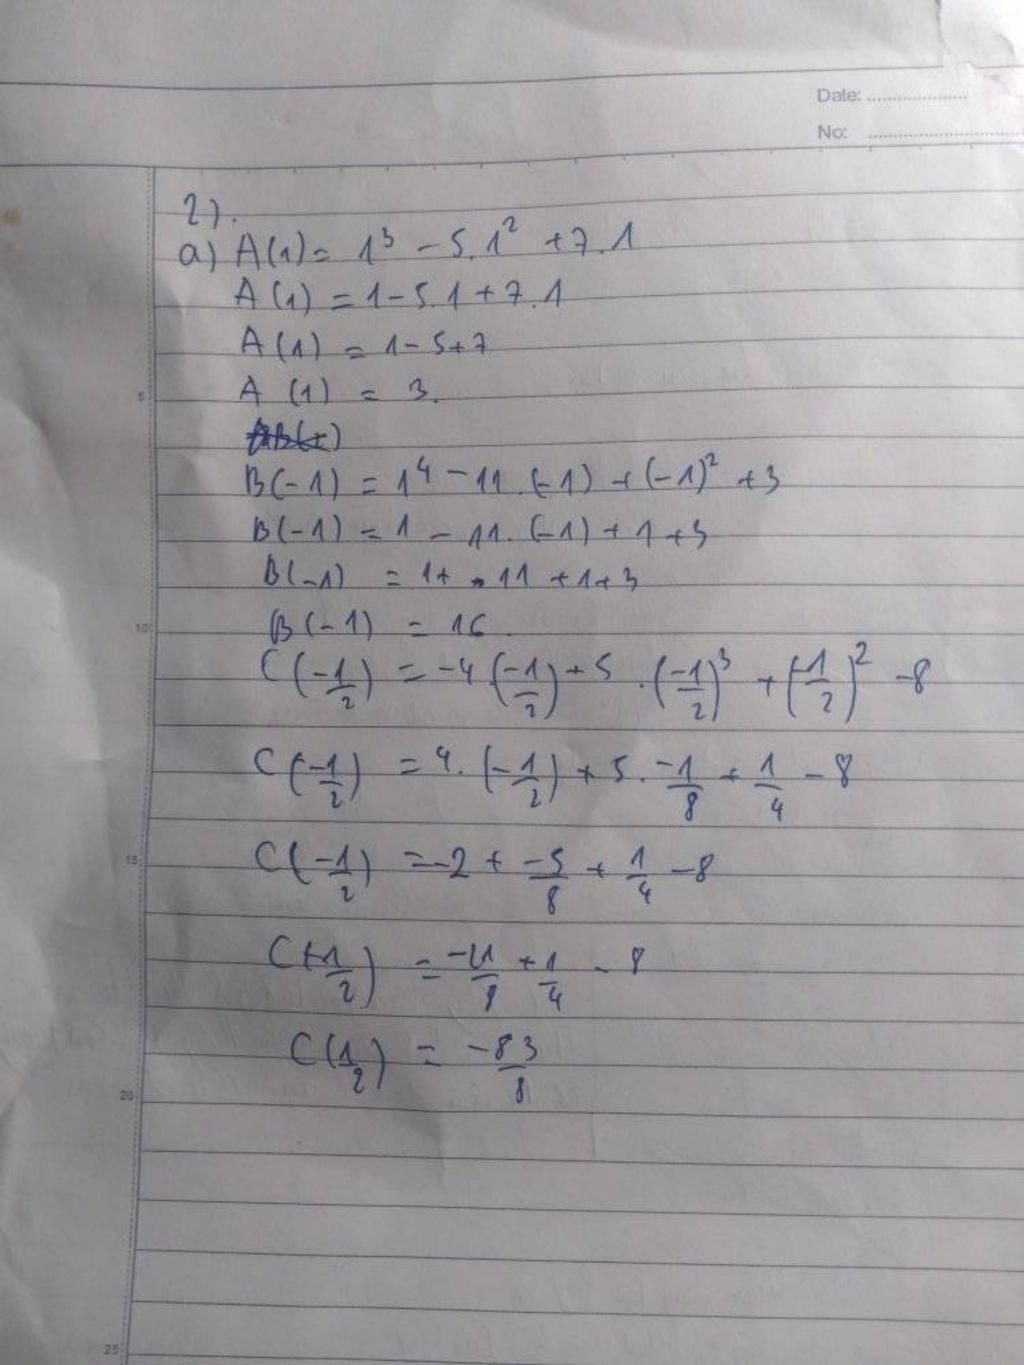 Date: ....................
No: ..............................
2).
a) A(1) = 1³ - 5.1² + 7.1
A(1) = 1-5.1+7.1
A(1) = 1-5+7
A (1) = 3.
B(-1) = 1⁴ - 11.(-1) + (-1)² + 3
B(-1) = 1 - 11.(-1) + 1 + 3
B(-1) = 1+ 11 + 1+3
B(-1) = 16.
C(-1/2) = -4.(-1/2) + 5.(-1/2)³ + (-1/2)² - 8
C(-1/2) = 4.(-1/2) + 5.-1/8 + 1/4 - 8
C(-1/2) = -2 + -5/8 + 1/4 - 8
C(-1/2) = -21/8 + 1/4 - 8
C(1/2) = -83/8
5
10
15
20
25